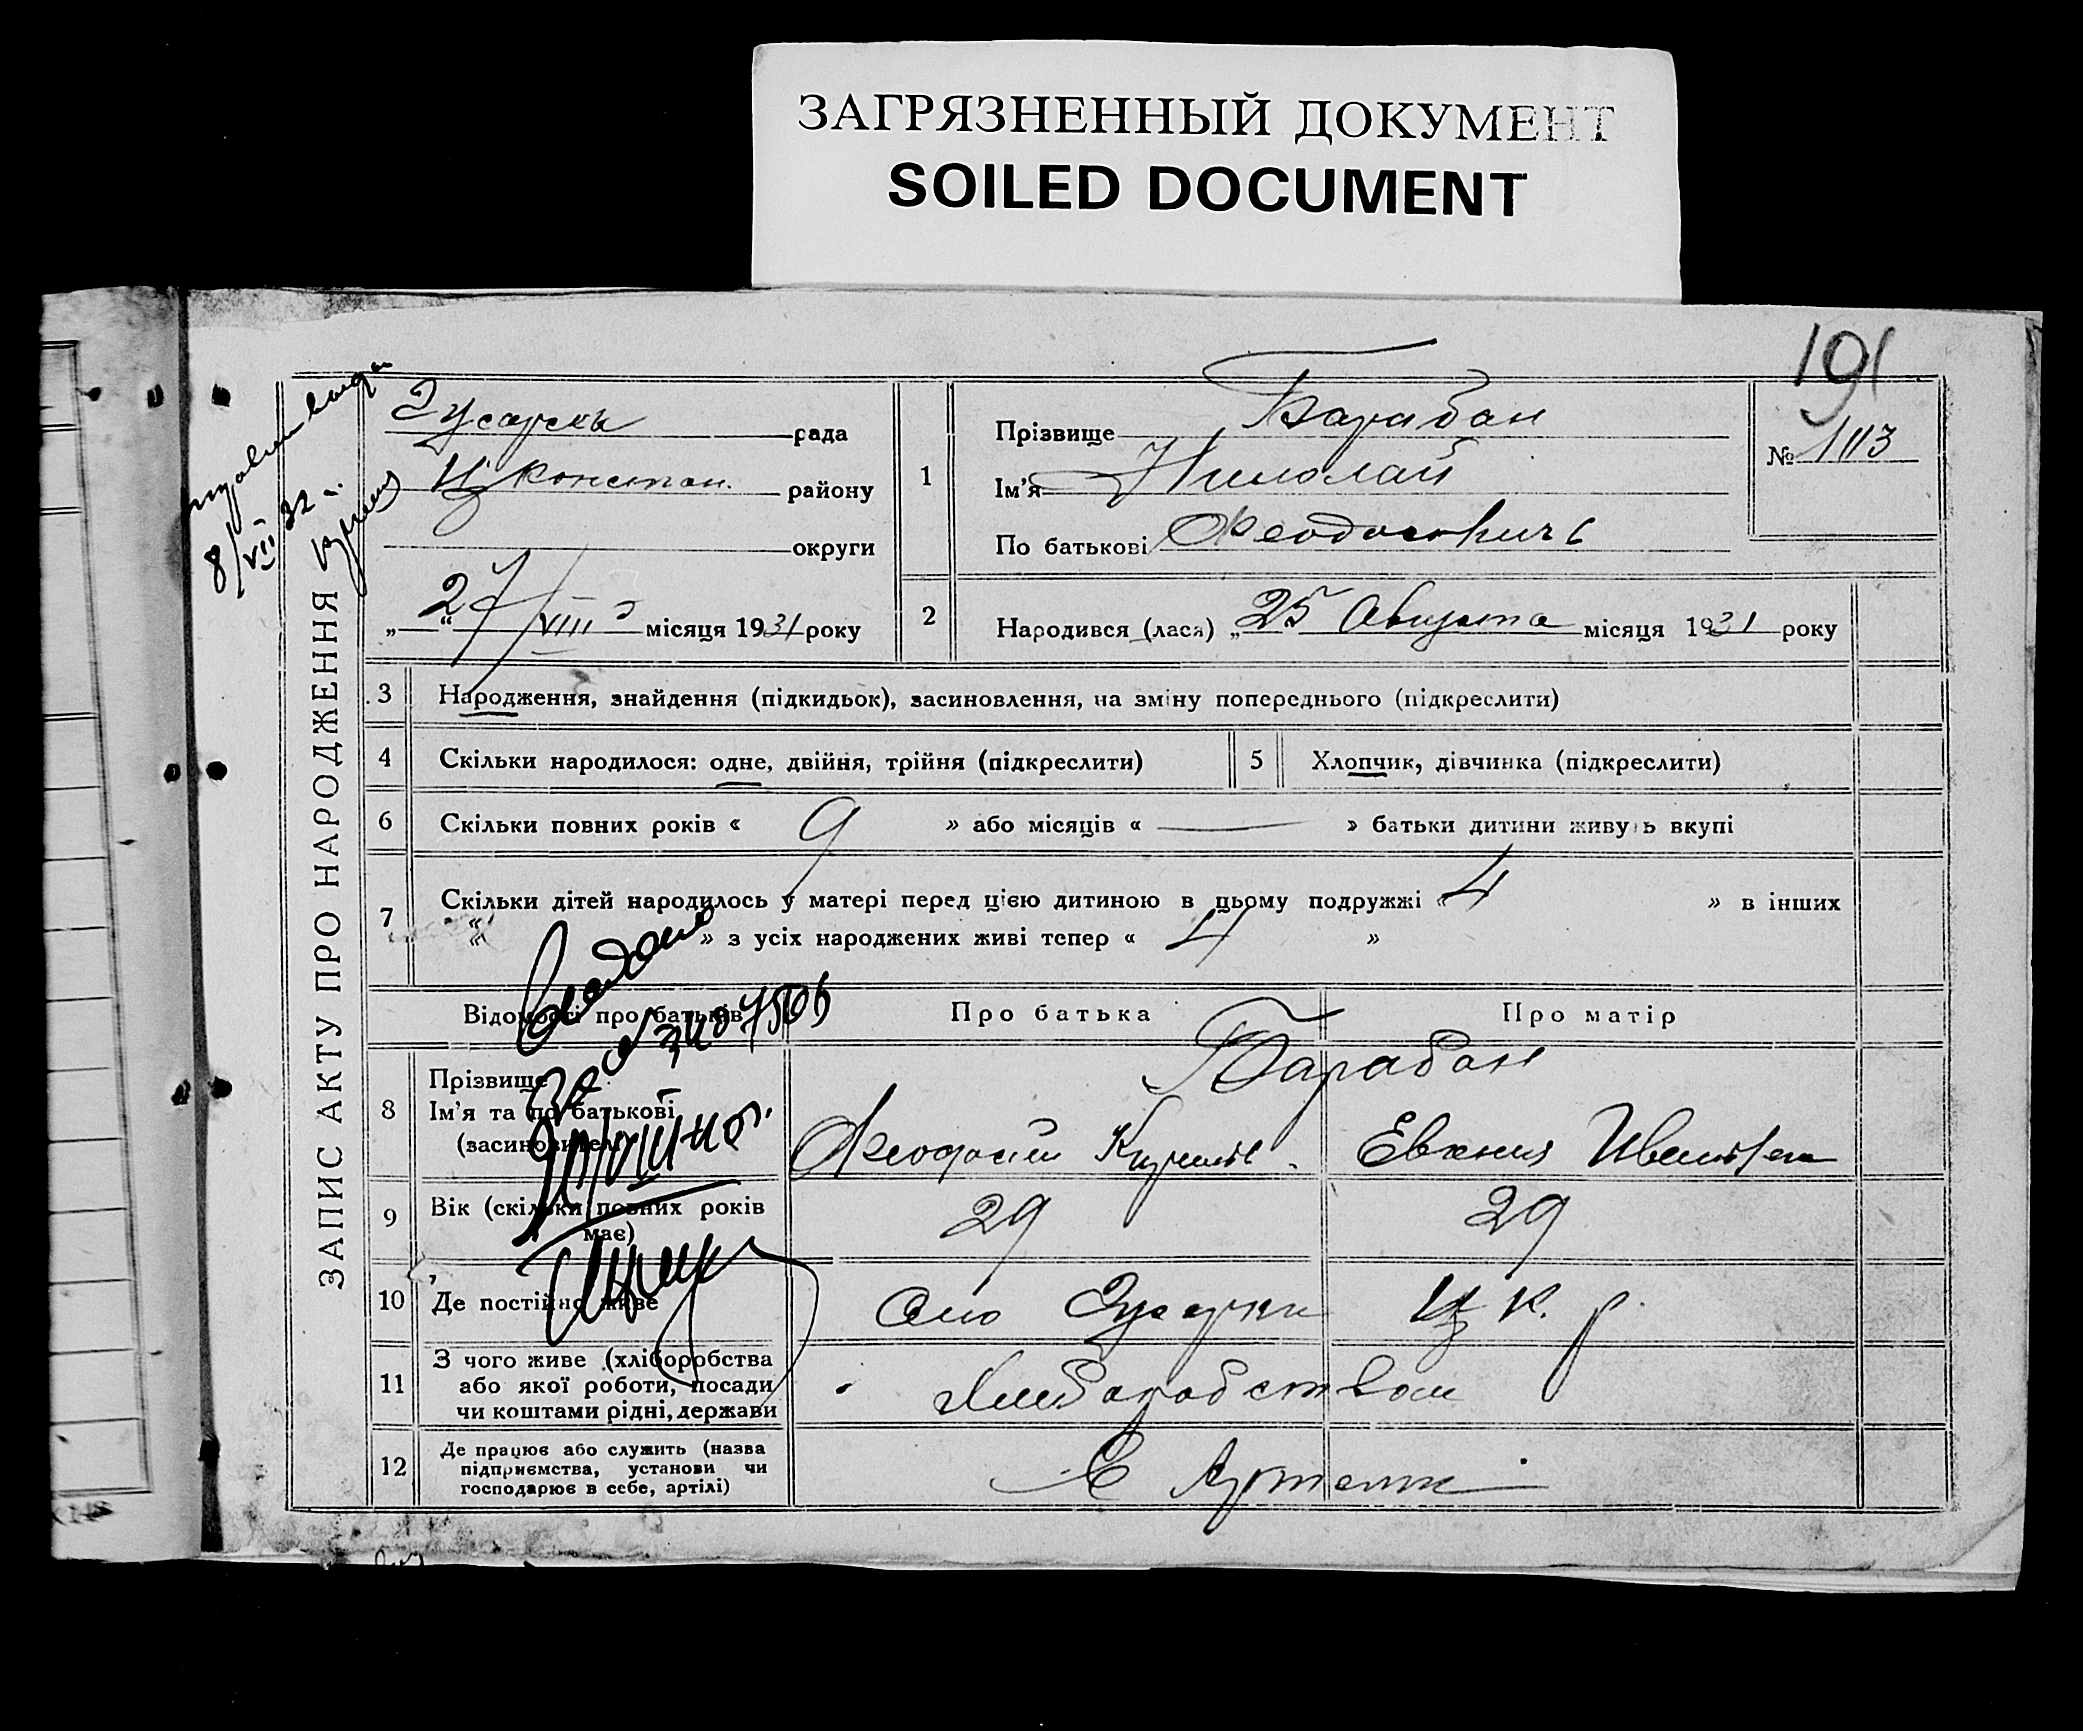 ЗАГРЯЗНЕННЫЙ ДОКУМЕНТ
SOILED DOCUMENT
191
ЗАПИС АКТУ ПРО НАРОДЖЕННЯ
8/VII 32 г.
рада
Ц Констан. району
округи
„27“ VIII місяця 1931 року
1
Прізвище Барабан
Ім'я Николай
По батькові Феодосович
№ 1113
2
Народився (лася) „25“ Августа місяця 1931 року
3 Народження, знайдення (підкидьок), засиновлення, на зміну попереднього (підкреслити)
4 Скільки народилося: одне, двійня, трійня (підкреслити)
5 Хлопчик, дівчинка (підкреслити)
6 Скільки повних років « 9 » або місяців « — » батьки дитини живуть вкупі
7 Скільки дітей народилось у матері перед цією дитиною в цьому подружжі « 4 » в інших
« » з усіх народжених живі тепер « 4 »
Відомості про батьків
Про батька
Про матір
8 Прізвище
Ім'я та по батькові
(засиновителя)
Барабан
Феодосий
Евгения Ивановна
9 Вік (скільки повних років має)
29
29
10 Де постійно живе
Село Ц К. р.
11 З чого живе (хліборобства
або якої роботи, посади
чи коштами рідні, держави
Хлиборобством
12 Де працює або служить (назва
підприємства, установи чи
господарює в себе, артілі)
В Артели